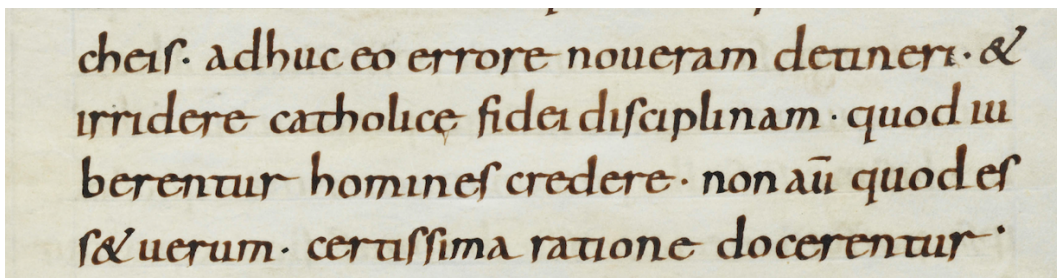 cheis· adhuc eo errore noueram detineri· &
irridere catholicę fidei disciplinam· quod iu
berentur homines credere· non aū quod es
s& uerum· certissima ratione docerentur·